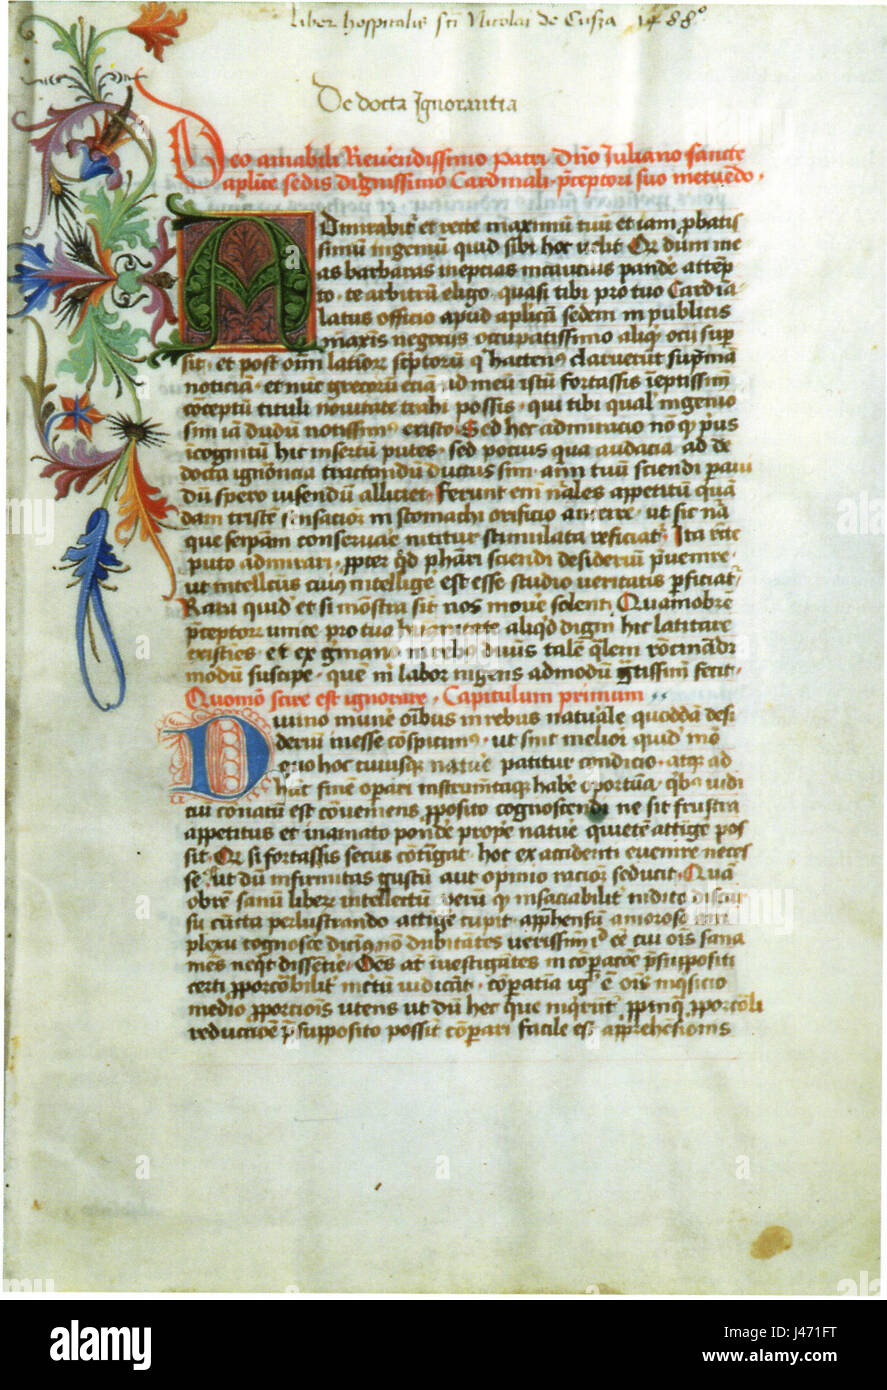 Liber hospitalis sti Nicolai de Cusza 1488°
De docta Ignorantia
Deo amabili Reuendissimo patri dno Iuliano sancte
aplice sedis dignissimo Cardinali pceptori suo metuendo
Admirabit et recte maximu tuu et iam probatis
simu ingeniu quid sibi hoc velit Qr dum me
as barbaras ineptias incautius pande attep
to te arbitru eligo quasi tibi pro tuo Cardia
latus officio apud aplica sedem in publicis
maxis negocys occupatissimo aliq ocii sup
sit et post oim latior sciptoru q hactenus claruerut supma
noticia et nuc grecoru ecia id meu istu fortassis ieptissim
coceptu tituli nouitate trahi possis qui tibi qual ingenio
sim ia dudu notissim existo Sed hec admiracio no q pus
icognitu hic insertu putes sed pocius qua audacia ad de
docta ignoncia tractandu ductus sim aim tuu sciendi paui
du spero visendu alliciet Ferunt eni nales appetitu qua
dam triste sensacior in stomachi orificio anteire ut sic na
que seipam conservare nititur stimulata reficiat Ita recte
puto admirari ppter qd phari sciendi desideriu puenire
ut intellcus cuius intellige est esse studio veritatis pficiat
Rara quid et si mostra sit nos moue solent Quamobre
pceptorr unice pro tua huanitate aliqd digni hic latitare
existies et ex gmano in rebo diuis tale qlem rocinandi
modu suscipe que in labor ingens admodu gtissim fecit
Quomo scire est ignorare Capitulum primum
Diuino mune oibus in rebus natuale quodda desi
deriu inesse cospicim ut sint melior quid mo
quo hoc cuiusq natue patitur condicio atq ad
huc fine opari instrumtaq habe oportua qba iudi
ciu conatu est coueniens pposito cognoscendi ne sit frustra
appetitus et in amato ponde prope natue quiete attige pos
sit Qr si fortassis secus cotigat hoc ex accidenti euenire neces
se ut du infirmitas gustu aut opinio racior seducit Qua
obre sanu liber intellectu veru q insaciabilit indito discur
su cucta perlustrando attige cupit apphensu amoroso am
plexu cognosce dicimus no dubitates verissim id ee cui ois sana
mes neqt dissentie Oes at iuestigates in copacoe psuppositi
certi pporcobilit incertu iudicat copatia ig e ois inqsicio
medio pporciois utens ut du hec que inqrunt ppinq pporcoli
reductioe psupposito possit copari facile est apprehesionis
alamy
alamy
Image ID: J471FT
www.alamy.com